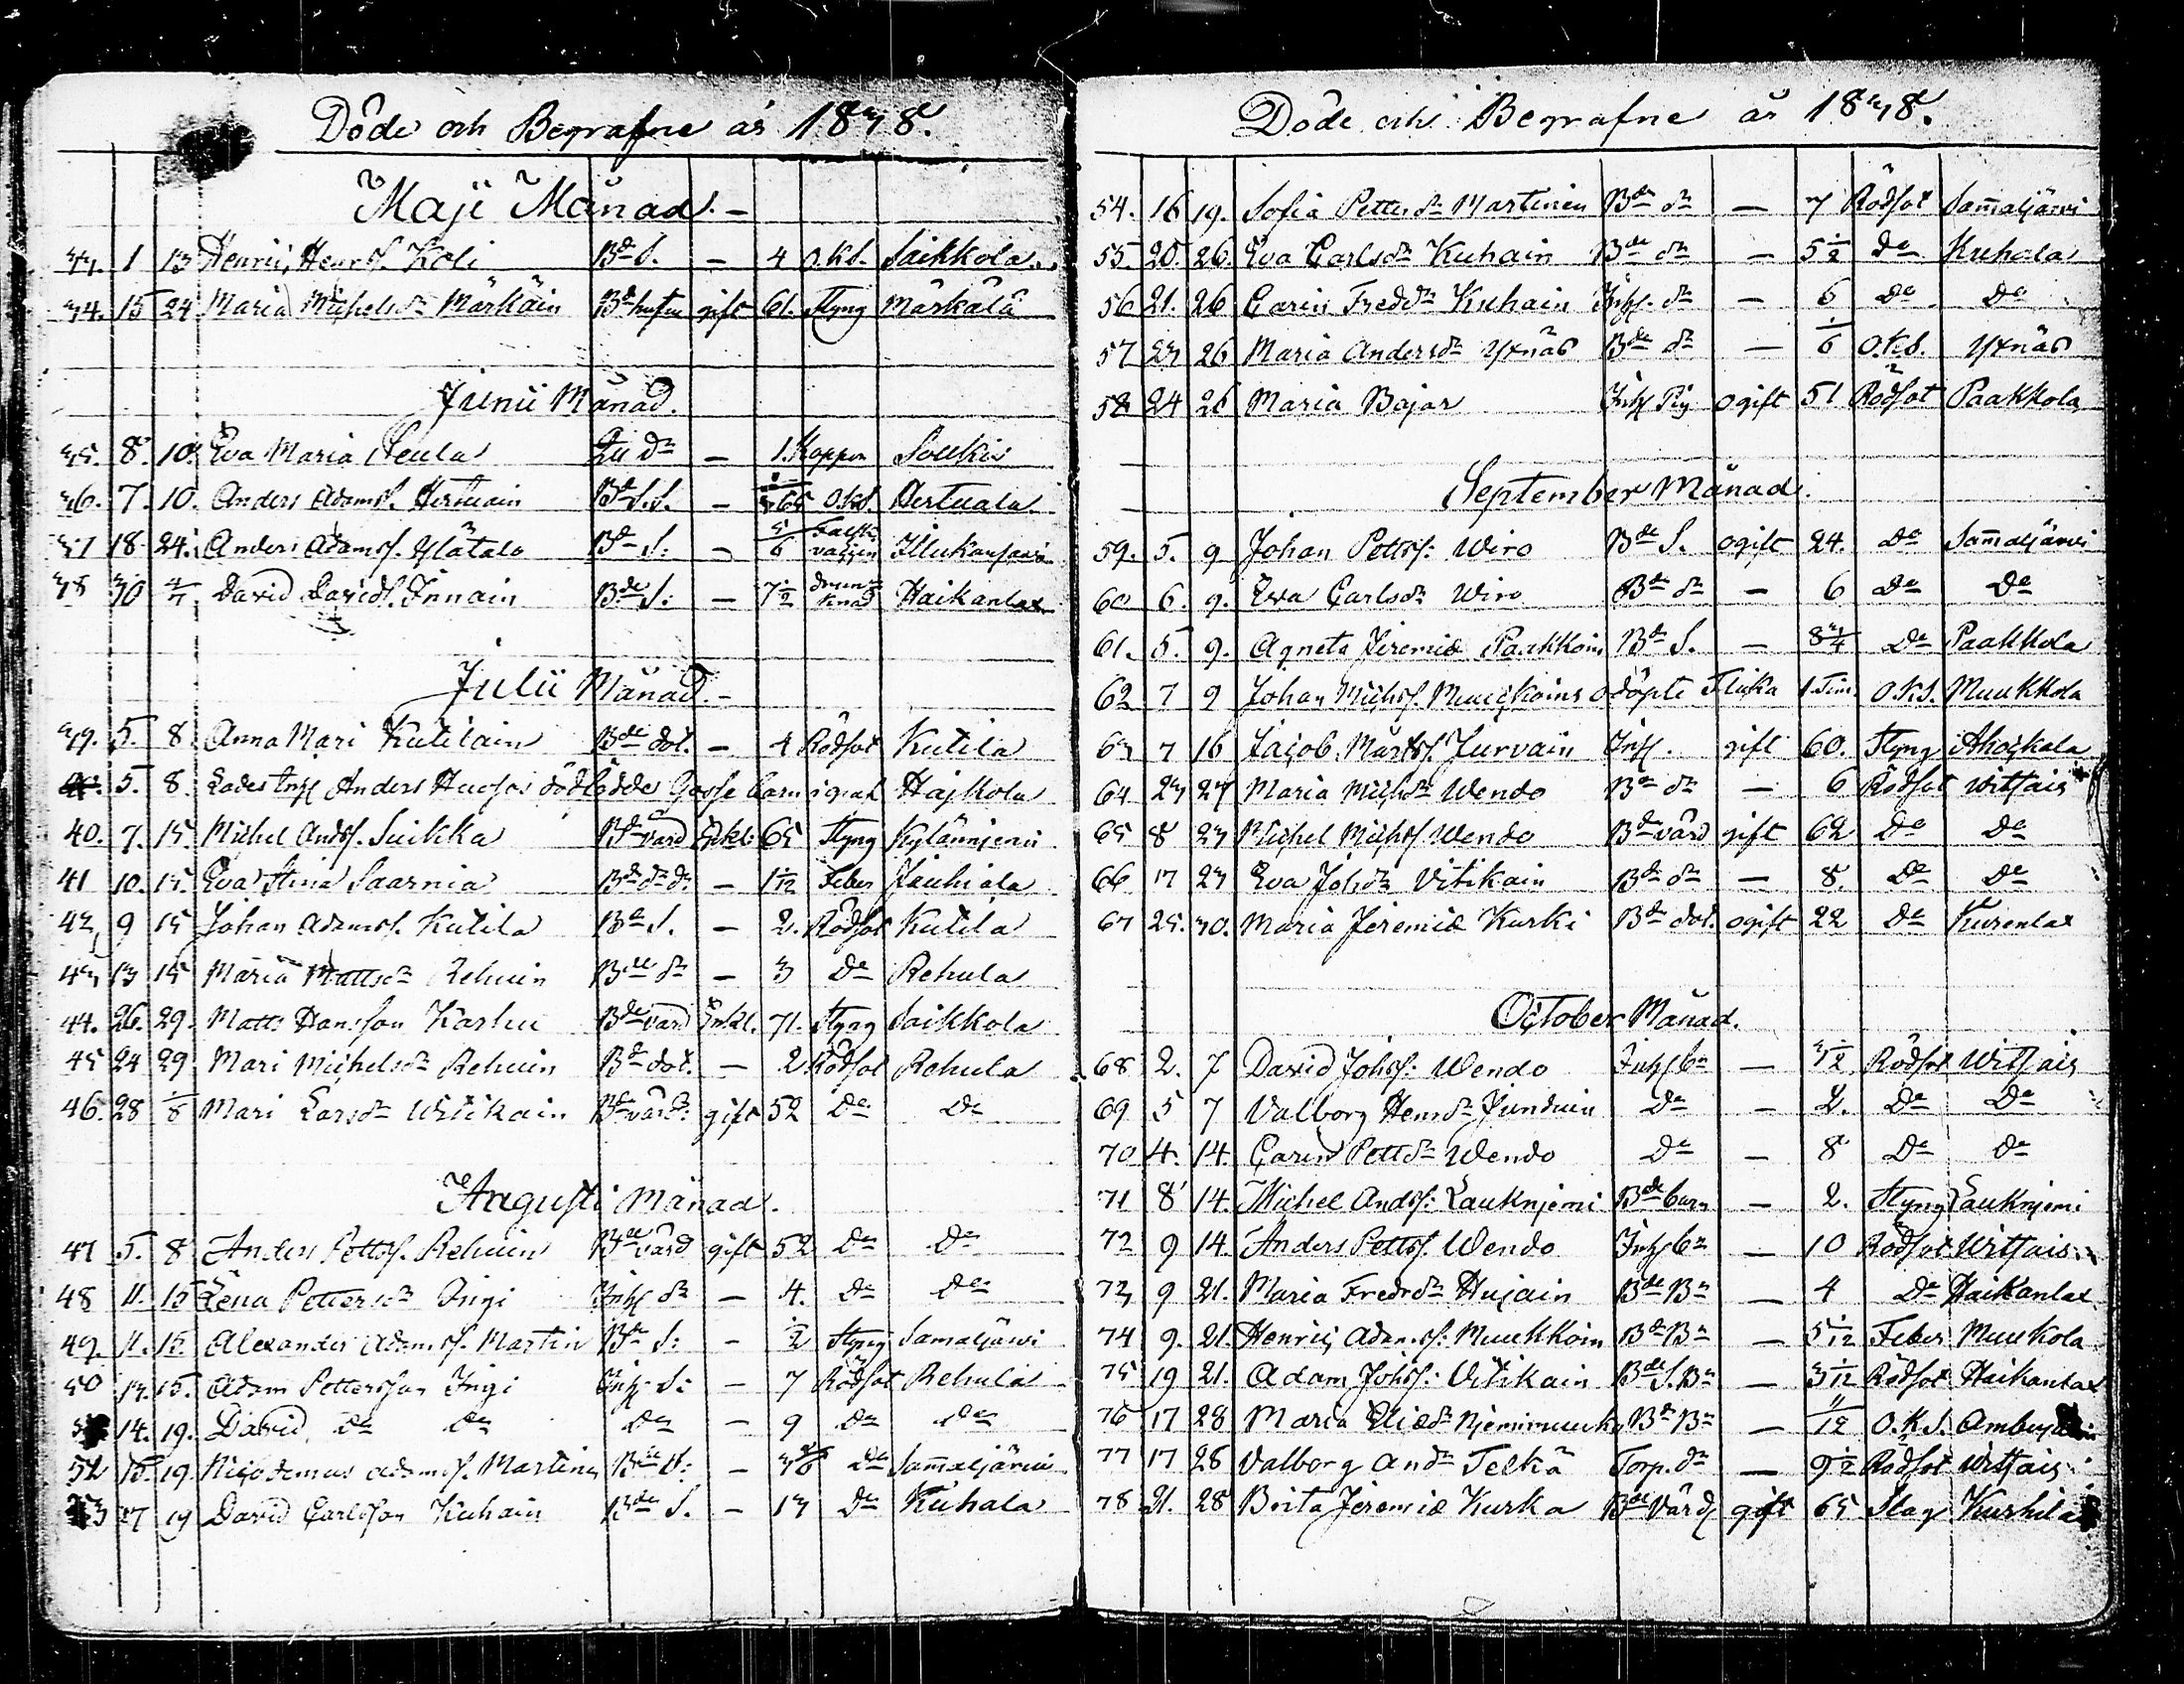 Döde och Begrafne år 1838.
Maji Månad. –
33. 1 13 Henric Henrs. Koli Bde S. – 4 O.k.S. Saikkola
34. 15 24 Maria Michelsdr Märkäin Bde hustru gift 61. Styng Märkälä
Junii Månad.
35. 8. 10. Eva Maria Seula dr – 1. Koppor Soukis
36. 7. 10. Anders Adams. Hertuain Bde S.S. – O.k.S. Hertuala
37 18 24. Anders Adams. Ylätalo Bde S: – Illukansaari
38 30 4/7 David Davids. Innain Bde S: – 7 1/2 Haikanlax
Julii Månad. –
39. 5. 8. Anna Mari Kutilain Bde dot. – 4 Rödsot Kutila
5. 8. Anders dödfödde Gosse barn Hajkola
40. 7. 15. Michel Ands. Suikka Bde värd Enkl: 65 Styng Kylänniemi
41 10. 15. Eva Stina Saarnia Bde dr dr – 1 1/12 Feber Jauhiala
42, 9 15 Johan Adams. Kutila Bde S. – 2. Rödsot Kutila
43 13 15 Maria Mattsdr Rehuin Bde dr – 3 De Rehula
44. 26. 29. Matts Hansson Karhu Bde värd Enkl. 71. Styng Saikkola
45 24 29 Mari Michelsdr Rehuin Bde dot. – 2. Rödsot Rehula
46. 28 1/8 Mari Larsdr Witikain Bde värd: gift 52 De De
Augusti Månad.
47 5. 8 Anders Petts. Rehuin Bde värd gift 52 De De
48 11. 15 Lena Pettersdr Ingi Inh dr – 4. De De
49. 11. 15. Alexander Adams. Martin Bde S: – 1/2 Styng Samaljärvi
50 13. 15. Adam Pettersson Ingi Inh S: – 7 Rödsot Rehula
14. 19. David De De De – 9 De De
52 15. 19. Nicodemus Adams. Martin Bde S: – De Sammaljärvi
53 17 19 David Carlsson Kuhain Bde S. – 13 De Kuhala
Döde och Begrafne år 1838.
54. 16 19. Sofia Pettersdr Martinen Bde dr – 7 Rödsot Sammaljärvi
55. 20. 26. Eva Carlsdr Kuhain Bde dr – 5 1/2 De Kuhala
56 21. 26 Carin Freddr Kuhain Inh. dr – 6 De De
57 23 26 Maria Andersdr Yxnäs Bde dr – 1/6 O.k.S. Yxnäs
58 24 26 Maria Bajar Inh Pig ogift 51 Rödsot Paakkola
September Månad.
59. 5. 9 Johan Petts: Wiro Bde S. ogift 24. De Sammaljärvi
60 6. 9. Eva Carlsdr Wiro Bde dr – 6 De De
61. 5. 9. Agneta Jeremiæ Paakkoin Bde S. – 8 3/4 De Paakkola
62 7 9 Johan Michs. Muukkoins odöpte Flicka 1. Tim. O.k.S. Muukkola
63 7 16 Jacob Märts. Jurvain Inh. gift 60. Styng Ahockala
64 23 27 Maria Michdr Wendo Bde dr – 6 Rödsot Witsais
65 8 23 Michel Michs. Wendo Bde värd gift 62 De De
66 17 23 Eva Johdr Vitikain Bde dr – 8. De De
67 25. 30. Maria Jeremiæ Kurki Bde dot. ogift 22 De Kurenlax
October Månad.
68 2. 7 David Johs: Wendo Inh bn – 3 1/2 Rödsot Witsais
69 5 7 Valborg Henrsdr Junduin De – 2. De De
70 4. 14. Carin Pettdr Wendo De – 8 De De
71 8 14. Michel Ands: Lauknjemi Bde barn – 2. Styng Lauknjemi
72 9 14. Anders Petts. Wendo Inh bn – 10 Rödsot Witsais
73 9 21. Maria Fredrdr Hujain Bde Bn – 4 De Haikanlax
74 9. 21. Henric Adams: Muukkoin Bde Bn – 5 1/12 Feber Muukola
75 19 21. Adam Johs: Vitikain Bde S. Bn – 3 1/12 Rödsot Haikanlax
76 17 28 Maria Eliædr Njemimuukko Bde Bn – 11/12 O.k.S.
77 17 28 Valborg Andr Telkä Torp. dr – 9 1/2 Rödsot Witsais
78 21. 28 Brita Jeremiæ Kurka Bde Värd gift 65 Slag Kurkila